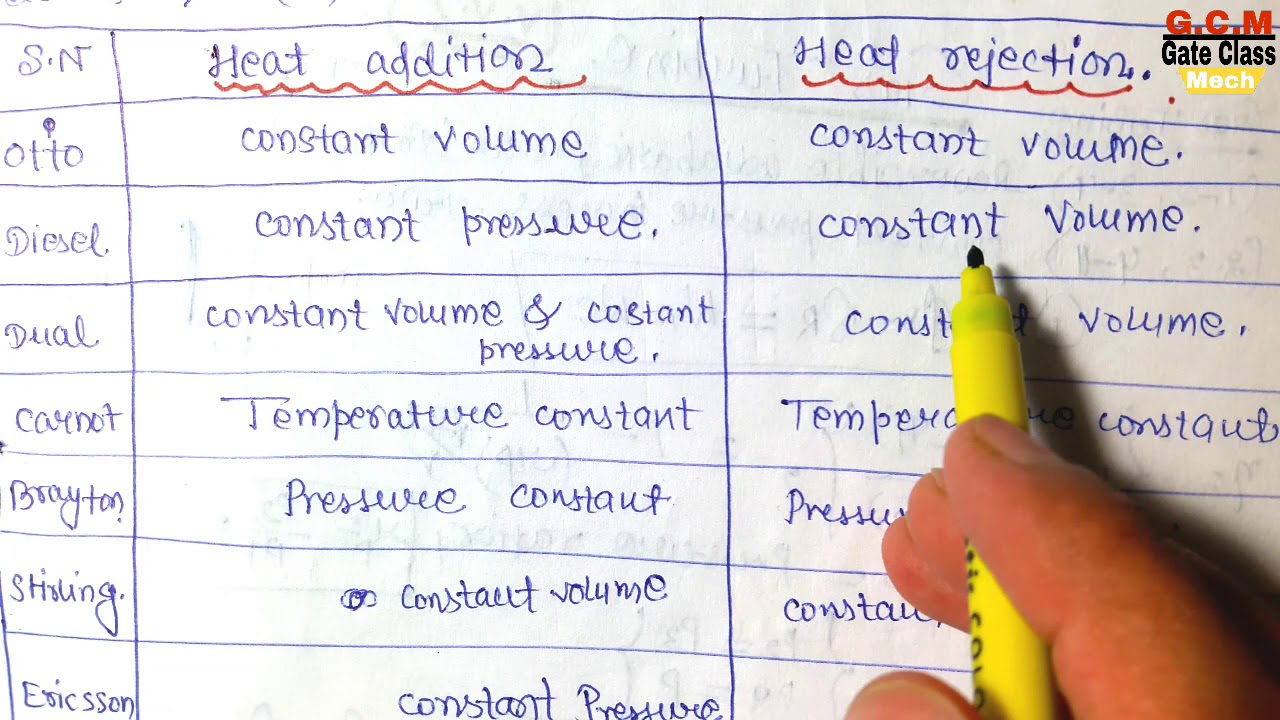 G.C.M
Gate Class
Mech
S.N Heat addition Heat rejection.
Otto constant volume constant volume.
Diesel. constant pressure. constant volume.
Dual constant volume & costant constant volume.
pressure.
Carnot Temperature constant Temperature constant
Brayton Pressure constant
Stirling. constant volume
Ericsson constant Pressure